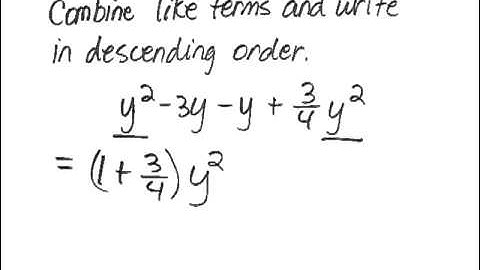 Combine like terms and write
in descending order.
y² - 3y - y + 3/4 y²
= (1 + 3/4) y²